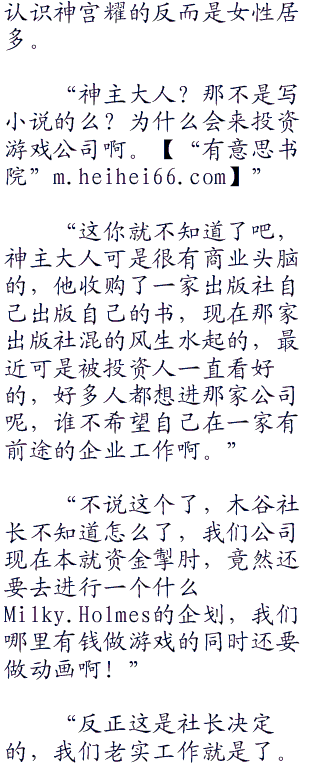 认识神宫耀的反而是女性居
多。
“神主大人？那不是写
小说的么？为什么会来投资
游戏公司啊。【“有意思书
院”m.heihei66.com】”
“这你就不知道了吧，
神主大人可是很有商业头脑
的，他收购了一家出版社自
己出版自己的书，现在那家
出版社混的风生水起的，最
近可是被投资人一直看好
的，好多人都想进那家公司
呢，谁不希望自己在一家有
前途的企业工作啊。”
“不说这个了，木谷社
长不知道怎么了，我们公司
现在本就资金掣肘，竟然还
要去进行一个什么
Milky.Holmes的企划，我们
哪里有钱做游戏的同时还要
做动画啊！”
“反正这是社长决定
的，我们老实工作就是了。